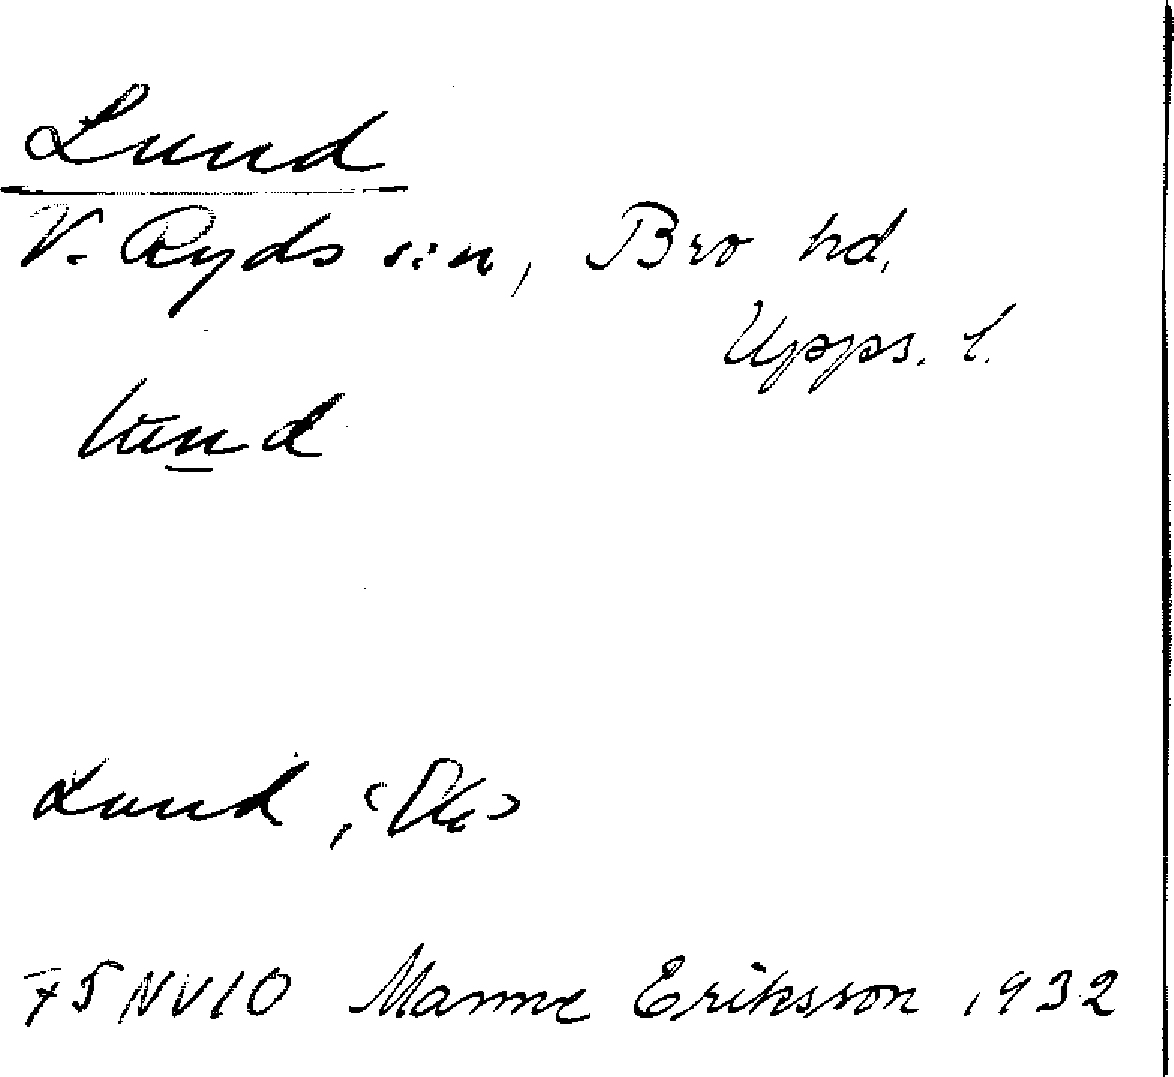 Lund
V. Ryds s:n, Bro hd,
Upps. l.
lund
Lund,
75 NV10 Manne Eriksson 1932